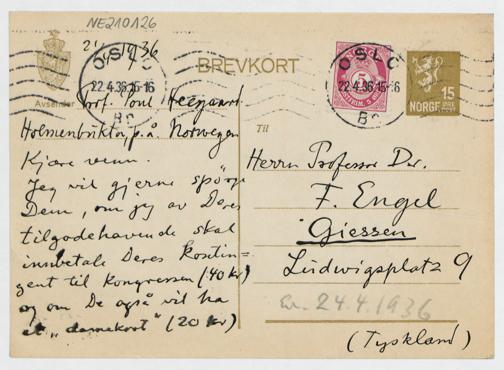 NE210126
2 4 1936
OSLO
22.4.36.15-16
Br
BREVKORT
5
OSLO
22.4.36.15-16
Br
15
NORGE
Avsender
Prof. Poul Heegaard
Holmenbukta, p.å. Norwegen
Til
Kjære venn.
Jeg vil gjerne spørge
Dem, om jeg av Deres
tilgodehavende skal
innbetale Deres kontin=
gent til kongressen (40 kr)
og om De også vil ha
et „damekort" (20 kr)
Herrn Professor Dr.
F. Engel
Giessen
Ludwigsplatz 9
Er. 24.4.1936
(Tyskland)